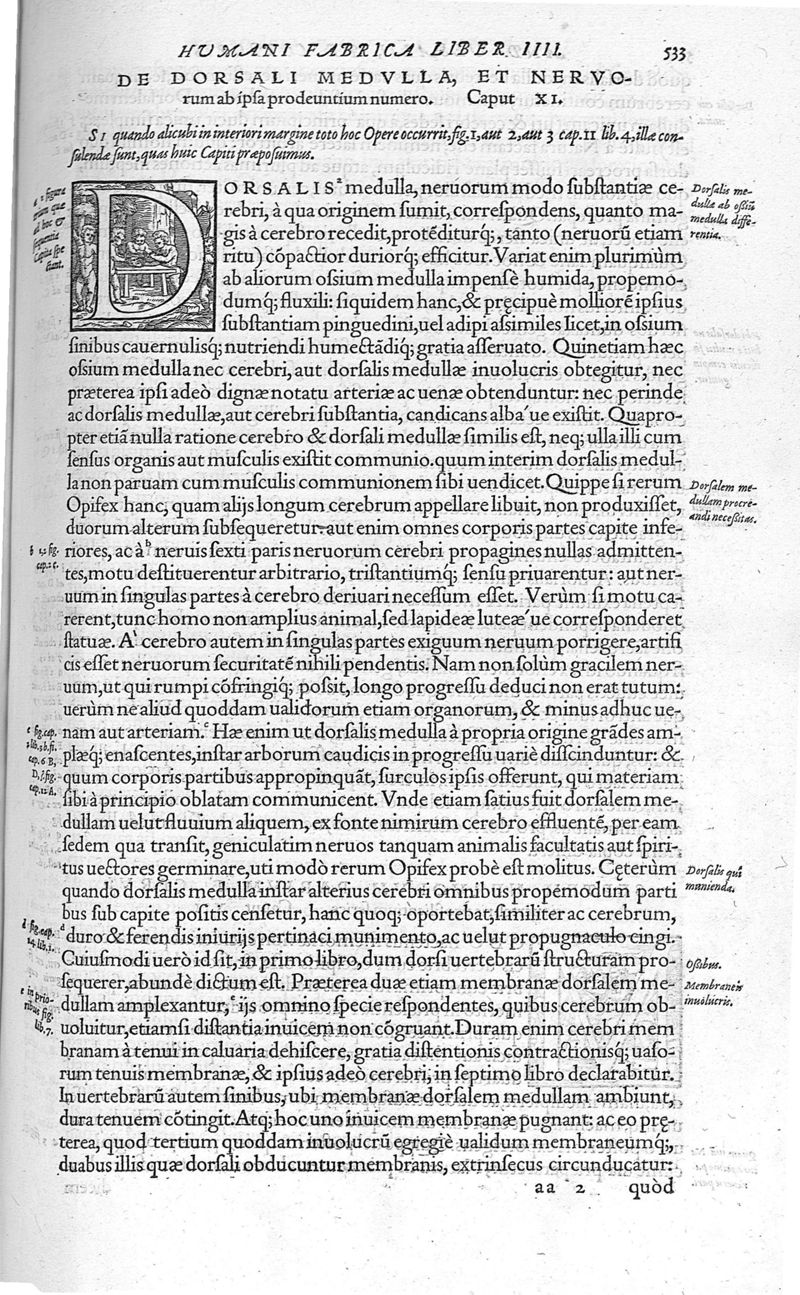 HVMANI FABRICA LIBER IIII. 533
DE DORSALI MEDVLLA, ET NERVO-
rum ab ipsa prodeuntium numero. Caput XI.
SI quando alicubi in interiori margine toto hoc Opere occurrit, fig. 1, aut 2, aut 3 cap. 11 lib. 4, illæ con-
sulendæ sunt, quas huic Capiti præposuimus.
DORSALISª medulla, neruorum modo substantiæ ce-
rebri, à qua originem sumit, correspondens, quanto ma-
gis à cerebro recedit, protẽditurq́;, tanto (neruorũ etiam
ritu) cõpactior duriorq́; efficitur. Variat enim plurimùm
ab aliorum ossium medulla impensè humida, propemo-
dumq́; fluxili: siquidem hanc, & pręcipuè mollioré ipsius
substantiam pinguedini, uel adipi assimiles licet, in ossium
sinibus cauernulisq́; nutriendi humectãdiq́; gratia asseruato. Quinetiam hæc
ossium medulla nec cerebri, aut dorsalis medullæ inuolucris obtegitur, nec
præterea ipsi adeò dignæ notatu arteriæ ac uenæ obtenduntur: nec perinde
ac dorsalis medullæ, aut cerebri substantia, candicans alba'ue existit. Quapro-
pter etiã nulla ratione cerebro & dorsali medullæ similis est, neq; ulla illi cum
sensus organis aut musculis existit communio. quum interim dorsalis medul-
la non paruam cum musculis communionem sibi uendicet. Quippe si rerum
Opifex hanc, quam alijs longum cerebrum appellare libuit, non produxisset,
duorum alterum subsequeretur. aut enim omnes corporis partes capite infe-
riores, ac àᵇ neruis sexti paris neruorum cerebri propagines nullas admitten-
tes, motu destituerentur arbitrario, tristantiumq́; sensu priuarentur: aut ner-
uum in singulas partes à cerebro deriuari necessum esset. Verùm si motu ca-
rerent, tunc homo non amplius animal, sed lapideæ luteæ'ue corresponderet
statuæ. A' cerebro autem in singulas partes exiguum neruum porrigere, artifi
cis esset neruorum securitaté nihili pendentis. Nam non solùm gracilem ner-
uum, ut qui rumpi cõfringiq́; possit, longo progressu deduci non erat tutum:
uerùm ne aliud quoddam ualidorum etiam organorum, & minus adhuc ue-
nam aut arteriam.ᶜ Hæ enim ut dorsalis medulla à propria origine grãdes am-
plæq́; enascentes, instar arborum caudicis in progressu uariè disscinduntur: &
quum corporis partibus appropinquãt, surculos ipsis offerunt, qui materiam
sibi à principio oblatam communicent. Vnde etiam satius fuit dorsalem me-
dullam uelut fluuium aliquem, ex fonte nimirum cerebro effluenté, per eam
sedem qua transit, geniculatim neruos tanquam animalis facultatis aut spiri-
tus uectores germinare, uti modò rerum Opifex probè est molitus. Cęterùm
quando dorsalis medulla instar alterius cerebri omnibus propemodum parti
bus sub capite positis censetur, hanc quoq; oportebat, similiter ac cerebrum,
ᵈduro & ferendis iniurijs pertinaci munimento, ac uelut propugnaculo cingi.
Cuiusmodi uerò id sit, in primo libro, dum dorsi uertebrarũ structuram pro-
sequerer, abundè dictum est. Præterea duæ etiam membranæ dorsalem me-
dullam amplexantur,ᵉ ijs omnino specie respondentes, quibus cerebrum ob-
uoluitur, etiamsi distantia inuicem non cõgruant. Duram enim cerebri mem
branam à tenui in caluaria dehiscere, gratia distentionis contractionisq́; uaso-
rum tenuis membranæ, & ipsius adeò cerebri, in septimo libro declarabitur.
In uertebrarũ autem sinibus, ubi membranæ dorsalem medullam ambiunt,
dura tenuem cõtingit. Atq́; hoc uno inuicem membranæ pugnant: ac eo prę-
terea, quod tertium quoddam inuolucrũ egregiè ualidum membraneumq́;,
duabus illis quæ dorsali obducuntur membranis, extrinsecus circunducatur:
aa 2 quòd
Dorsalis me-
dullæ ab ossiũ
medulla diffe-
rentia.
Dorsalem me-
dullam procre-
andi necessitas.
Dorsalis quî
munienda.
Ossibus.
Membraneis
inuolucris.